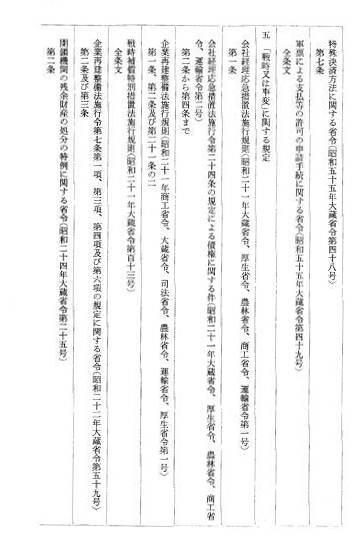 特殊決済方法に関する省令(昭和五十五年大蔵省令第四十八号)
第七条
軍票による支払等の許可の申請手続に関する省令(昭和五十五年大蔵省令第四十九号)
全条文
五 「戦時又は事変」に関する規定
会社経理応急措置法施行規則(昭和二十一年大蔵省令、厚生省令、農林省令、商工省令、運輸省令第一号)
第一条
会社経理応急措置法施行令第二十四条の規定による債権に関する件(昭和二十一年大蔵省令、厚生省令、農林省令、商工省
令、運輸省令第二号)
第二条から第四条まで
企業再建整備法施行規則(昭和二十一年商工省令、大蔵省令、司法省令、農林省令、運輸省令、厚生省令第一号)
第一条、第二条及び第二十一条の二
戦時補償特別措置法施行規則(昭和二十一年大蔵省令第百十三号)
全条文
企業再建整備法施行令第七条第一項、第三項、第四項及び第六項の規定に関する省令(昭和二十二年大蔵省令第五十九号)
第二条及び第三条
閉鎖機関の残余財産の処分の特例に関する省令(昭和二十四年大蔵省令第二十五号)
第二条